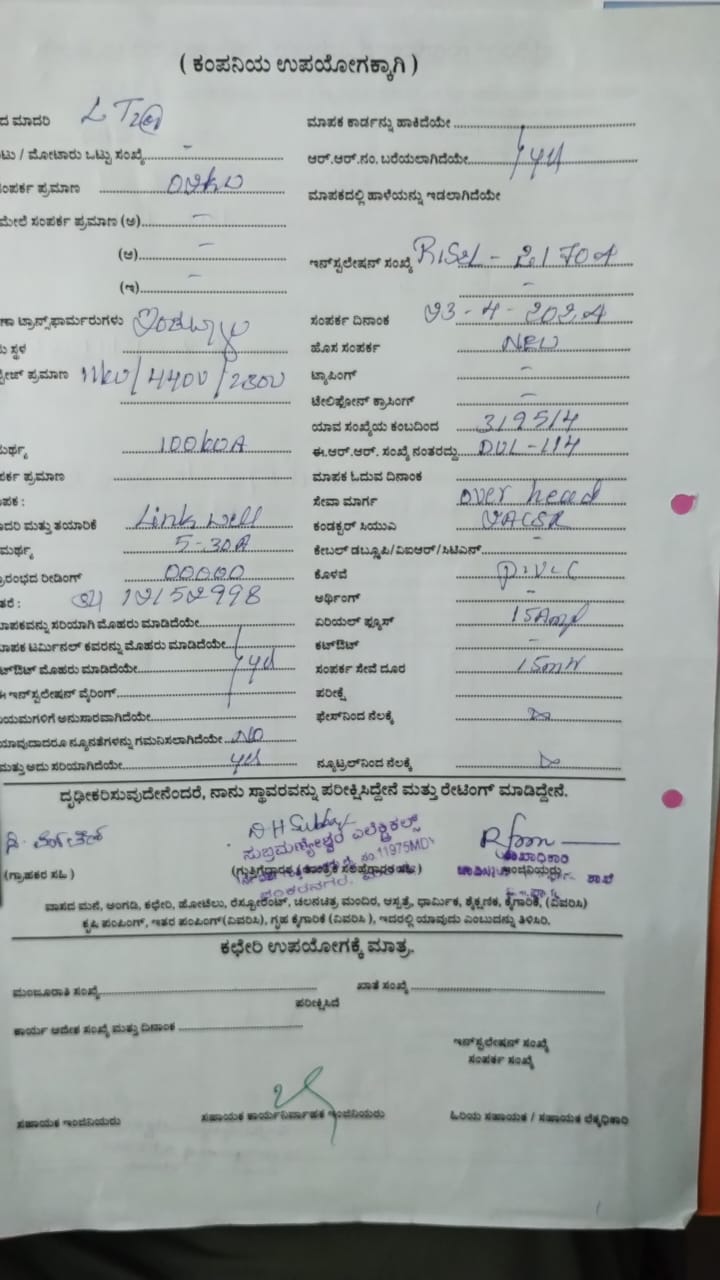 ( ಕಂಪನಿಯ ಉಪಯೋಗಕ್ಕಾಗಿ )
ದ ಮಾದರಿ LT2(a) ಮಾಪಕ ಕಾರ್ಡನ್ನು ಹಾಕಿದೆಯೇ
ಟು / ಮೋಟಾರು ಒಟ್ಟು ಸಂಖ್ಯೆ - ಆರ್.ಆರ್.ನಂ. ಬರೆಯಲಾಗಿದೆಯೇ yes
ಸಂಪರ್ಕ ಪ್ರಮಾಣ ಮಾಪಕದಲ್ಲಿ ಹಾಳೆಯನ್ನು ಇಡಲಾಗಿದೆಯೇ
ಮೇಲೆ ಸಂಪರ್ಕ ಪ್ರಮಾಣ (ಅ) -
(ಆ) - ಇನ್‌ಸ್ಟಲೇಷನ್ ಸಂಖ್ಯೆ
(ಇ) - -
ಣಾ ಟ್ರಾನ್ಸ್‌ಫಾರ್ಮರುಗಳು ಸಂಪರ್ಕ ದಿನಾಂಕ 23-4-2024
ು ಸ್ಥಳ ಹೊಸ ಸಂಪರ್ಕ NEW
ಲ್ಟೇಜ್ ಪ್ರಮಾಣ 11KV/440V/230V ಟ್ಯಾಪಿಂಗ್ -
ಟೆಲಿಫೋನ್ ಕ್ರಾಸಿಂಗ್ -
ಯಾವ ಸಂಖ್ಯೆಯ ಕಂಬದಿಂದ 3/95/4
ಮರ್ಥ್ಯ 100KVA ಈ.ಆರ್.ಆರ್. ಸಂಖ್ಯೆ ನಂತರದ್ದು DVL-114
ಪರ್ಕ ಪ್ರಮಾಣ ಮಾಪಕ ಓದುವ ದಿನಾಂಕ
ಾಪಕ : ಸೇವಾ ಮಾರ್ಗ over head
ಾದರಿ ಮತ್ತು ತಯಾರಿಕೆ Link well ಕಂಡಕ್ಟರ್ ಸಿಯುಎ
ಮರ್ಥ್ಯ 5-30A ಕೇಬಲ್ ಡಬ್ಲ್ಯೂಪಿ/ವಿಐಆರ್/ಸಿಟಿಎಸ್ -
ಾರಂಭದ ರೀಡಿಂಗ್ 00000 ಕೊಳವೆ P.V.C
ತರೆ : 12152998 ಅರ್ಥಿಂಗ್ -
ಾಪಕವನ್ನು ಸರಿಯಾಗಿ ಮೊಹರು ಮಾಡಿದೆಯೇ ಏರಿಯಲ್ ಫ್ಯೂಸ್ 15Amp
ಾಪಕ ಟರ್ಮಿನಲ್ ಕವರನ್ನು ಮೊಹರು ಮಾಡಿದೆಯೇ ಕಟ್‌ಔಟ್ -
ಟ್‌ಔಟ್ ಮೊಹರು ಮಾಡಿದೆಯೇ yes ಸಂಪರ್ಕ ಸೇವೆ ದೂರ
ಈ ಇನ್‌ಸ್ಟಲೇಷನ್ ವೈರಿಂಗ್ ಪರೀಕ್ಷೆ
ಿಯಮಗಳಿಗೆ ಅನುಸಾರವಾಗಿದೆಯೇ ಫೇಸ್‌ನಿಂದ ನೆಲಕ್ಕೆ ∞
ಯಾವುದಾದರೂ ನ್ಯೂನತೆಗಳನ್ನು ಗಮನಿಸಲಾಗಿದೆಯೇ NO
ಮತ್ತು ಅದು ಸರಿಯಾಗಿದೆಯೇ yes ನ್ಯೂಟ್ರಲ್‌ನಿಂದ ನೆಲಕ್ಕೆ ∞
ದೃಢೀಕರಿಸುವುದೇನೆಂದರೆ, ನಾನು ಸ್ಥಾವರವನ್ನು ಪರೀಕ್ಷಿಸಿದ್ದೇನೆ ಮತ್ತು ರೇಟಿಂಗ್ ಮಾಡಿದ್ದೇನೆ.
ಸುಬ್ರಮಣ್ಯೇಶ್ವರ ಎಲೆಕ್ಟ್ರಿಕಲ್ಸ್
(ಗ್ರಾಹಕರ ಸಹಿ)
ವಾಸದ ಮನೆ, ಅಂಗಡಿ, ಕಛೇರಿ, ಹೋಟೆಲು, ರೆಸ್ಟೋರೆಂಟ್, ಚಲನಚಿತ್ರ ಮಂದಿರ, ಆಸ್ಪತ್ರೆ, ಧಾರ್ಮಿಕ, ಶೈಕ್ಷಣಿಕ, ಕೈಗಾರಿಕೆ, (ವಿವರಿಸಿ)
ಕೃಷಿ ಪಂಪಿಂಗ್, ಇತರ ಪಂಪಿಂಗ್(ವಿವರಿಸಿ), ಗೃಹ ಕೈಗಾರಿಕೆ (ವಿವರಿಸಿ ), ಇದರಲ್ಲಿ ಯಾವುದು ಎಂಬುದನ್ನು ತಿಳಿಸಿರಿ.
ಕಛೇರಿ ಉಪಯೋಗಕ್ಕೆ ಮಾತ್ರ.
ಮಂಜೂರಾತಿ ಸಂಖ್ಯೆ ಖಾತೆ ಸಂಖ್ಯೆ
ಪರೀಕ್ಷಿಸಿದೆ
ಕಾರ್ಯ ಆದೇಶ ಸಂಖ್ಯೆ ಮತ್ತು ದಿನಾಂಕ
ಇನ್‌ಸ್ಟಲೇಷನ್ ಸಂಖ್ಯೆ
ಸಂಪರ್ಕ ಸಂಖ್ಯೆ
ಸಹಾಯಕ ಇಂಜಿನಿಯರು ಸಹಾಯಕ ಕಾರ್ಯನಿರ್ವಾಹಕ ಇಂಜಿನಿಯರು ಹಿರಿಯ ಸಹಾಯಕ / ಸಹಾಯಕ ಲೆಕ್ಕಾಧಿಕಾರಿ